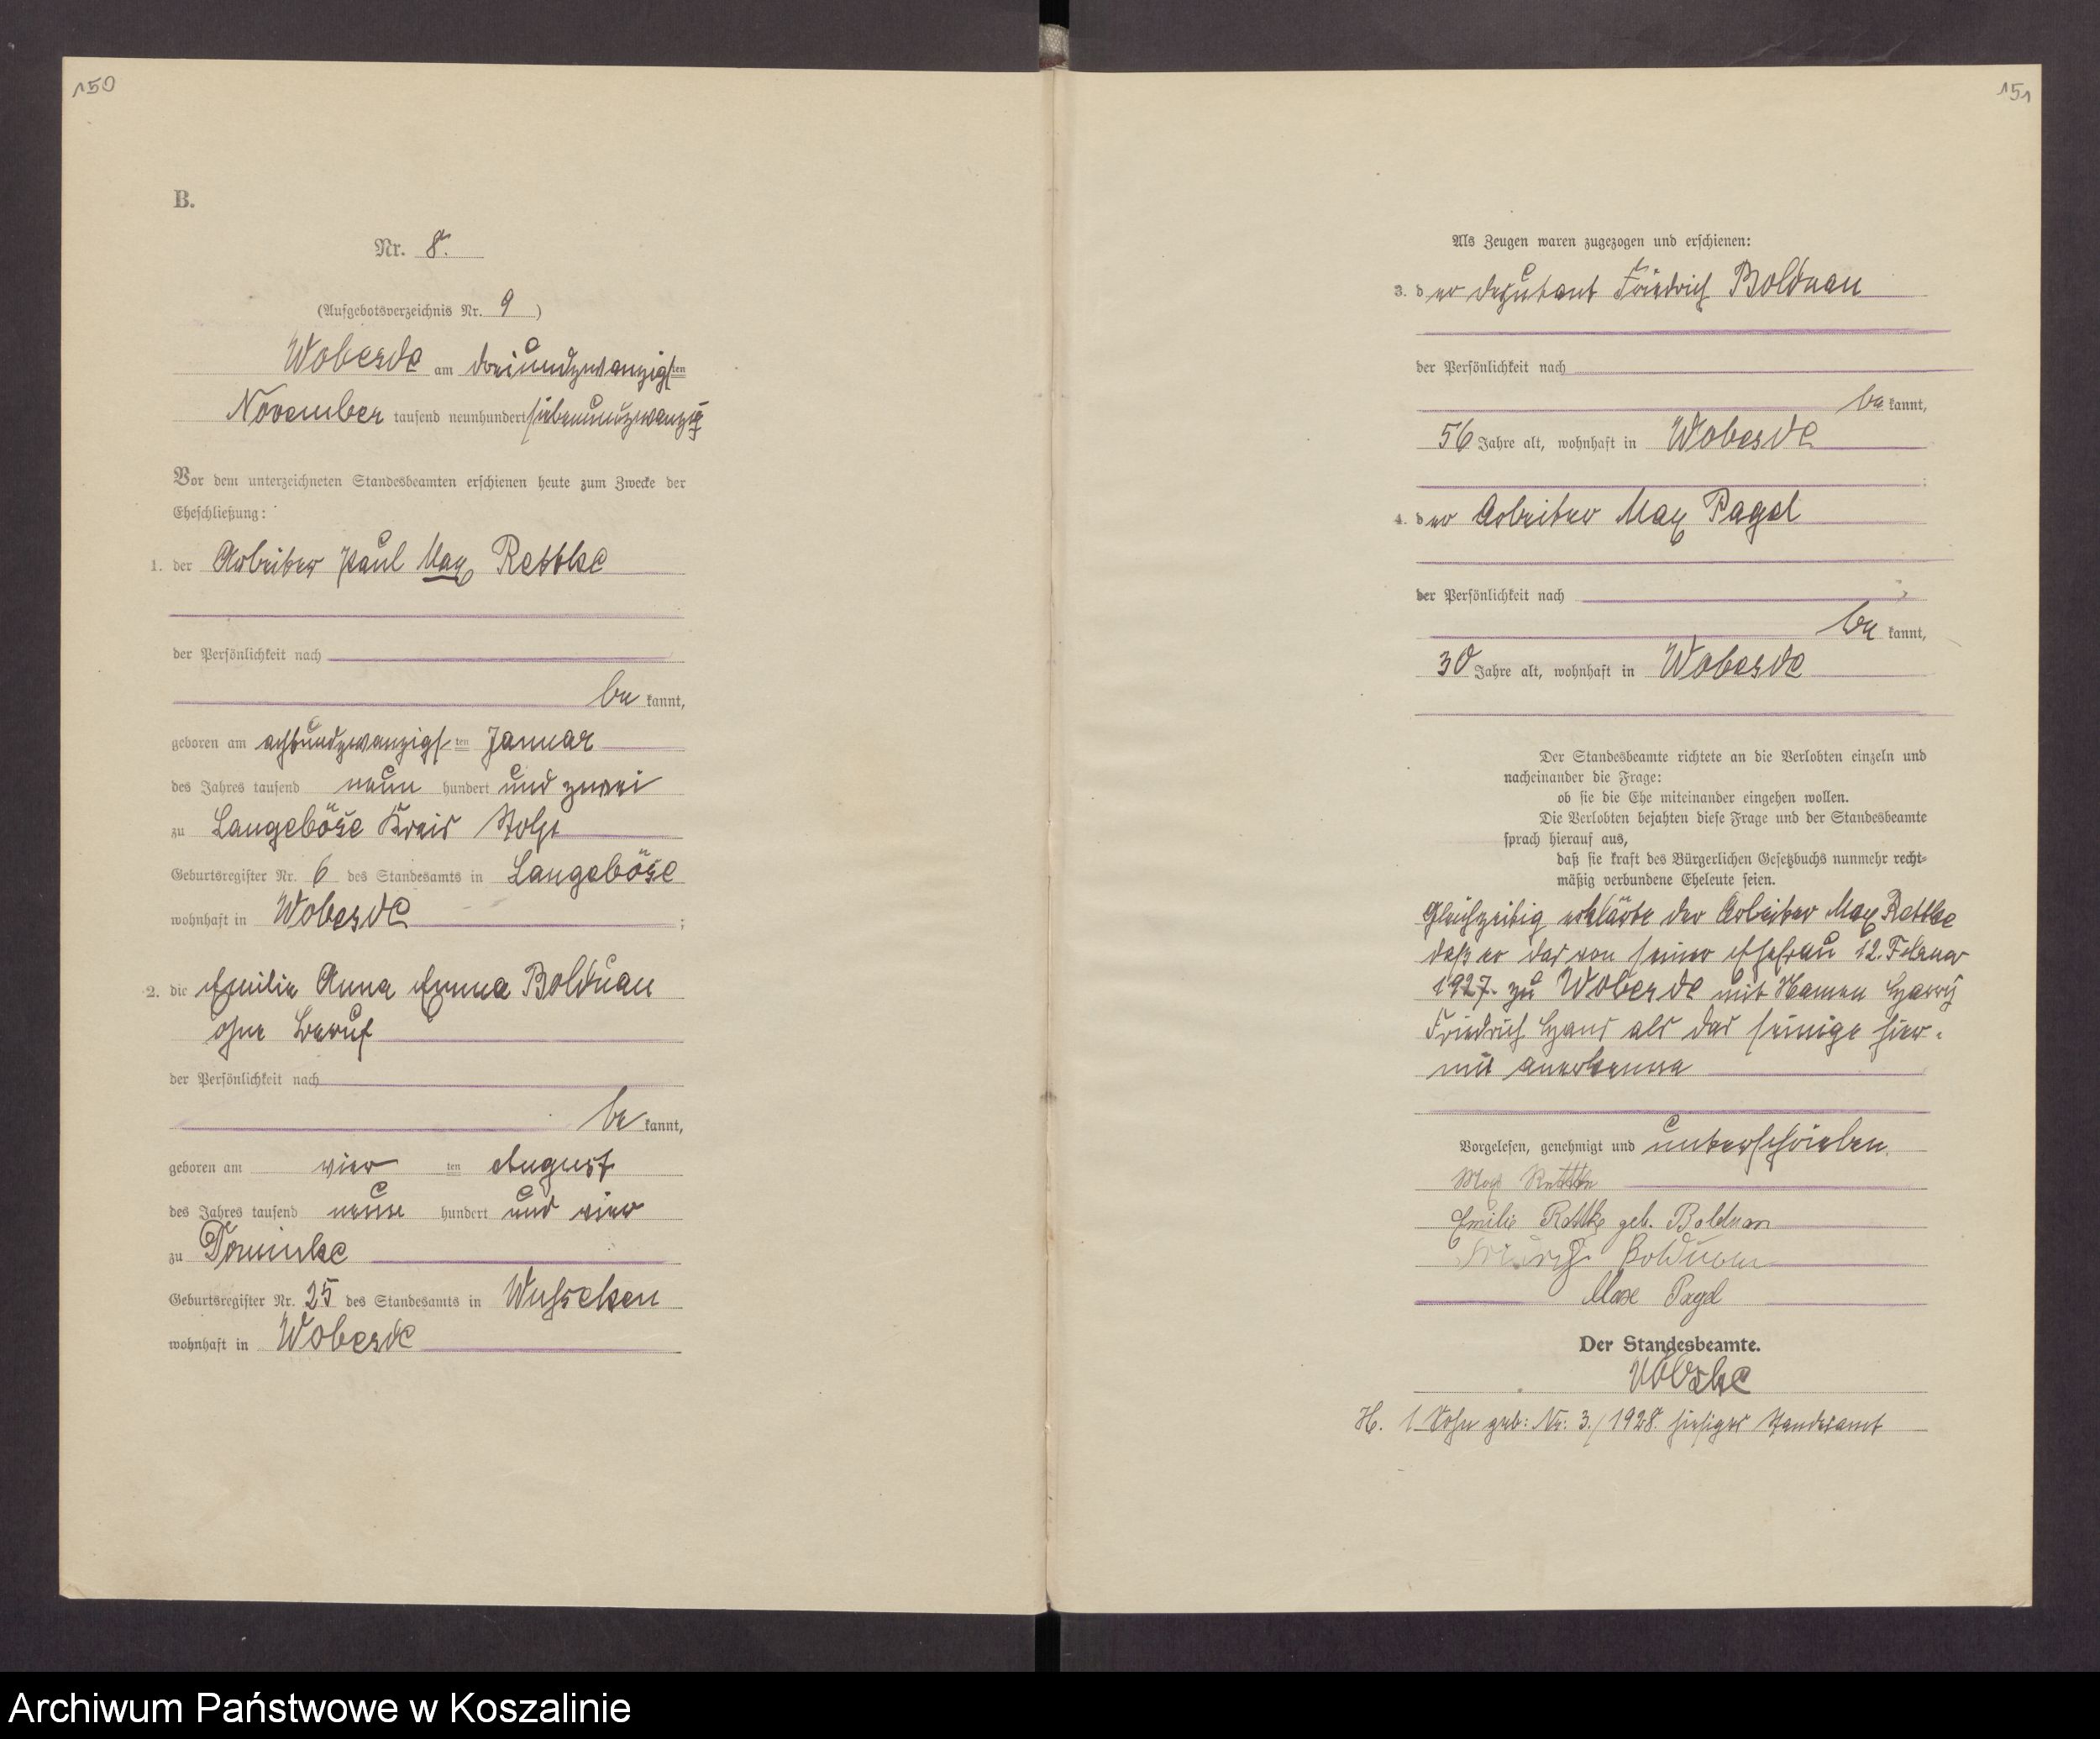 150
B.
Nr. 8.
(Aufgebotsverzeichnis Nr. 9)
Wobesde am dreiundzwanzigsten
November tausend neunhundert siebenundzwanzig
Vor dem unterzeichneten Standesbeamten erschienen heute zum Zwecke der
Eheschließung:
1. der Arbeiter Paul Max Rettke
der Persönlichkeit nach
bekannt,
geboren am achtundzwanzigsten Januar
des Jahres tausend neun hundert und zwei
zu Langeböse Kreis Stolp
Geburtsregister Nr. 6 des Standesamts in Langeböse
wohnhaft in Wobesde;
2. die Emilie Anna Emma Boldnau
ohne Beruf
der Persönlichkeit nach
bekannt,
geboren am vierten August
des Jahres tausend neun hundert und vier
zu Dominke
Geburtsregister Nr. 25 des Standesamts in Wusseken
wohnhaft in Wobesde
151
Als Zeugen waren zugezogen und erschienen:
3. der Deputant Friedrich Boldnau
der Persönlichkeit nach
bekannt,
56 Jahre alt, wohnhaft in Wobesde
;
4. der Arbeiter Max Pagel
der Persönlichkeit nach
bekannt,
30 Jahre alt, wohnhaft in Wobesde
Der Standesbeamte richtete an die Verlobten einzeln und
nacheinander die Frage:
ob sie die Ehe miteinander eingehen wollen.
Die Verlobten bejahten diese Frage und der Standesbeamte
sprach hierauf aus,
daß sie kraft des Bürgerlichen Gesetzbuchs nunmehr recht-
mäßig verbundene Eheleute seien.
Gleichzeitig erklärte der Arbeiter Max Rettke
daß er das von seiner Ehefrau 12. Februar
1927. zu Wobesde mit Namen Harry
Friedrich Hans als das seinige hier-
mit anerkenne
Vorgelesen, genehmigt und unterschrieben.
Max Rettke
Emilie Rettke geb. Boldnau
Friedrich Boldnau
Max Pagel
Der Standesbeamte.
H. 1 Sohn geb: Nr: 3./1928. hiesiges Standesamt
Archiwum Państwowe w Koszalinie